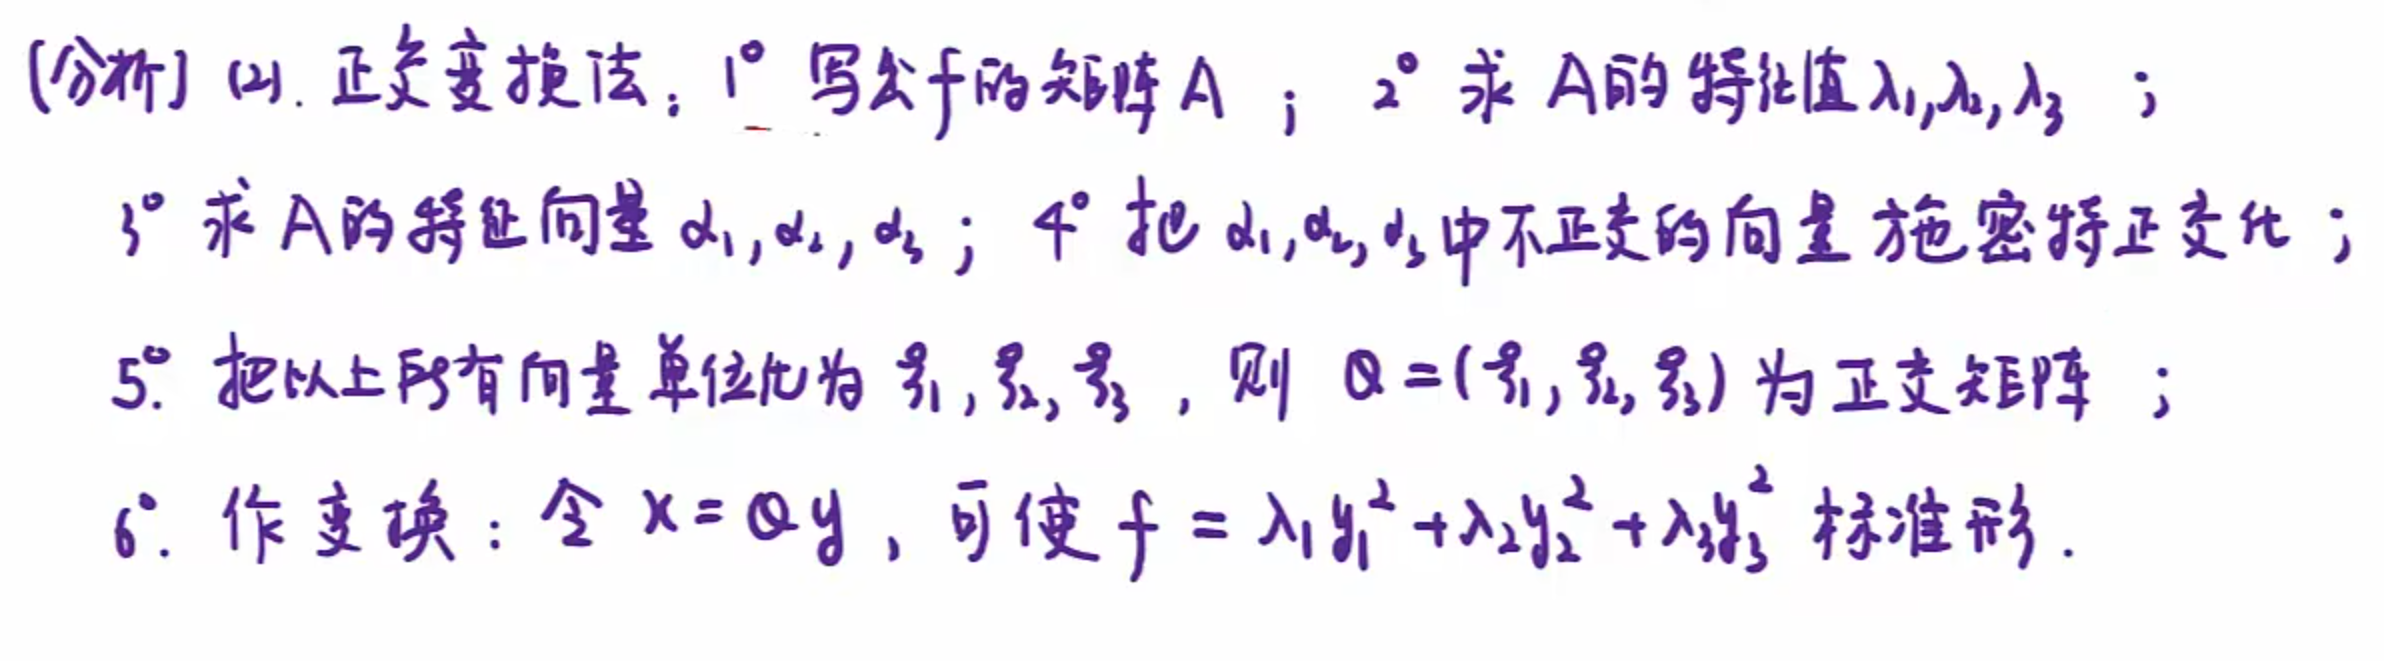 [分析] (2). 正交变换法：1° 写出f的矩阵A ； 2° 求 A的特征值λ₁,λ₂,λ₃ ；
3° 求 A的特征向量 α₁,α₂,α₃ ； 4° 把 α₁,α₂,α₃中不正交的向量 施密特正交化 ；
5°. 把以上所有向量单位化为 ξ₁,ξ₂,ξ₃ ，则 Q=(ξ₁,ξ₂,ξ₃) 为正交矩阵 ；
6°. 作变换：令 x=Qy ，可使 f = λ₁y₁²+λ₂y₂²+λ₃y₃² 标准形.